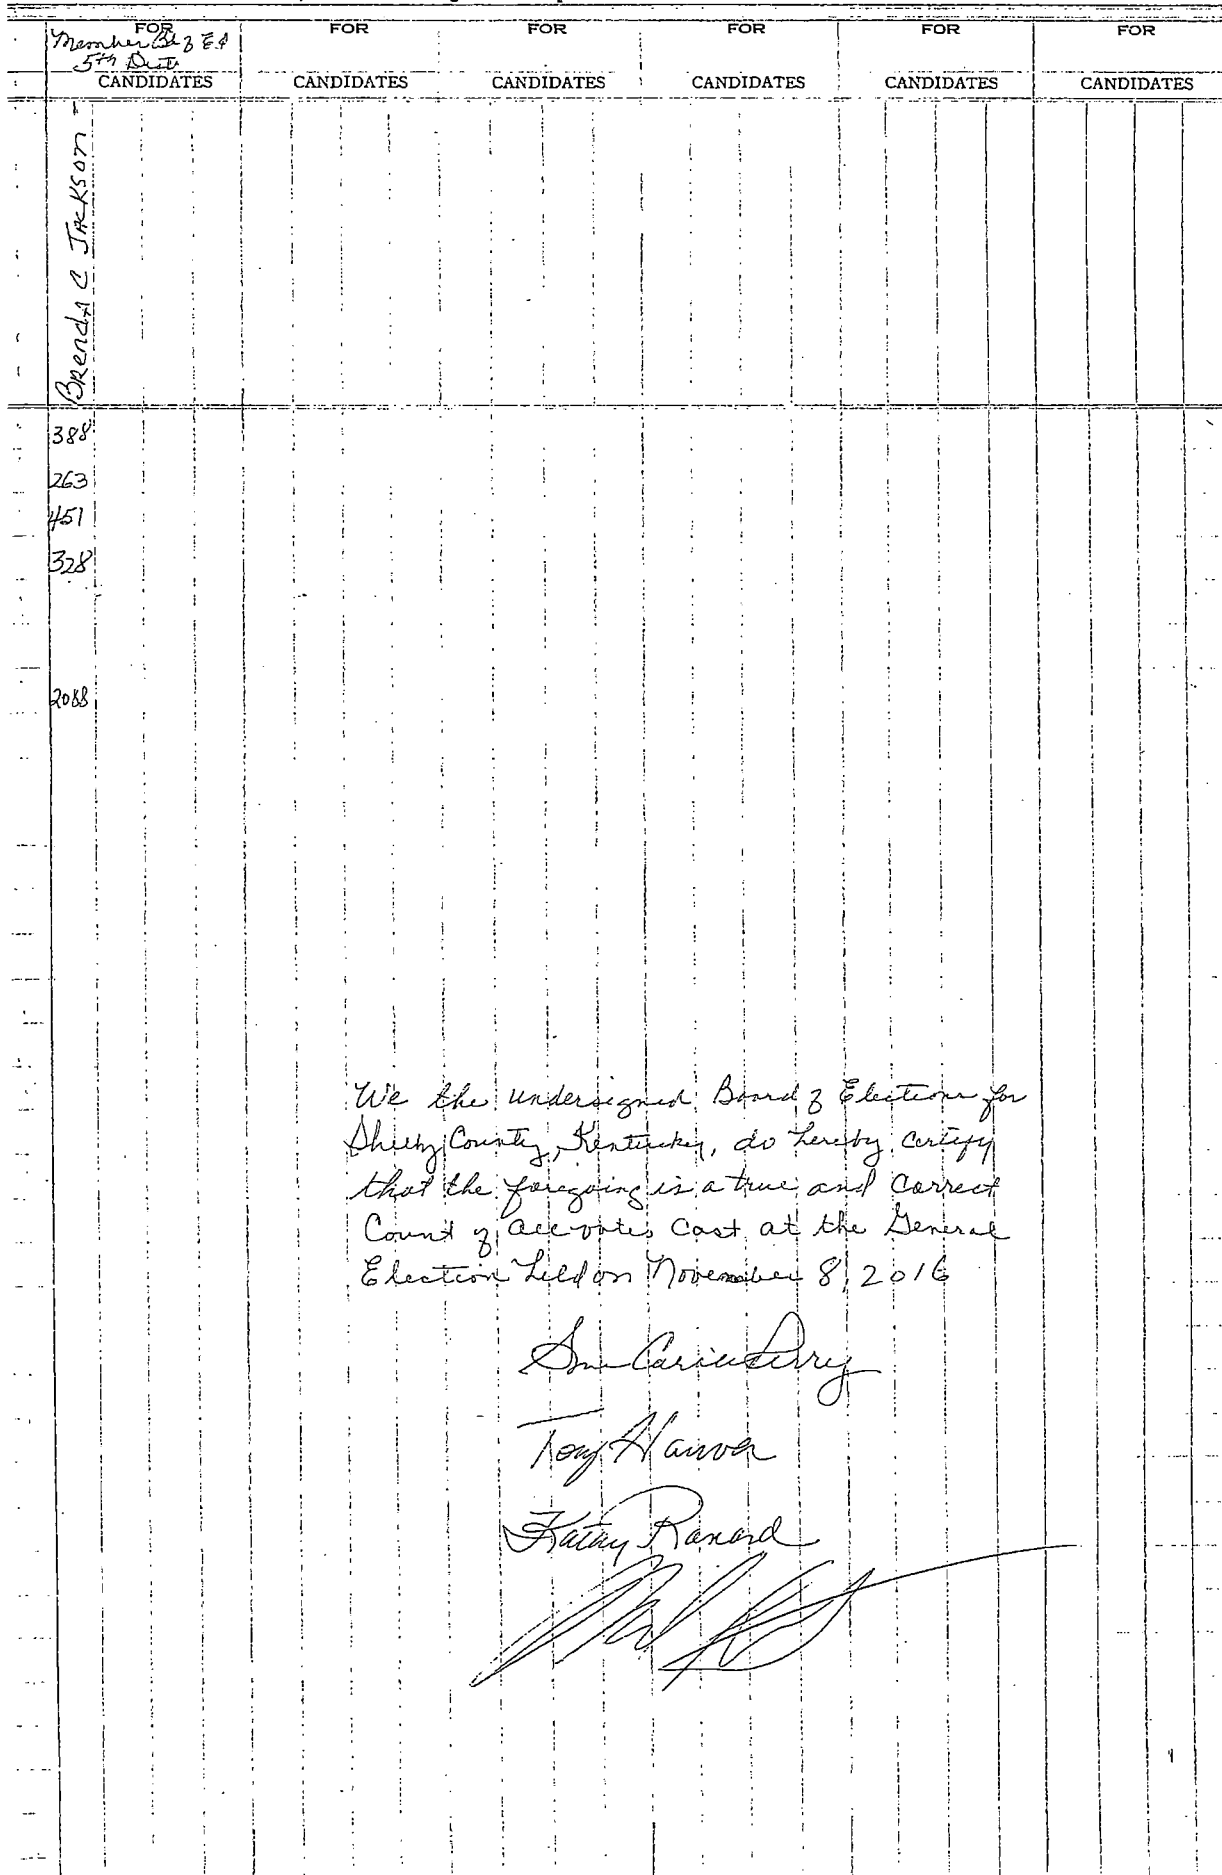 FOR FOR FOR FOR FOR FOR
Member Bd of Ed
5th Dist
CANDIDATES CANDIDATES CANDIDATES CANDIDATES CANDIDATES CANDIDATES
Brenda C Jackson
388
263
451
328
2088
We the undersigned Board of Elections for
Shelby County, Kentucky, do hereby certify
that the foregoing is a true and correct
Count of all votes cast at the General
Election held on November 8, 2016
Sue Carole Perry
Tony Harover
Kathy Ranard